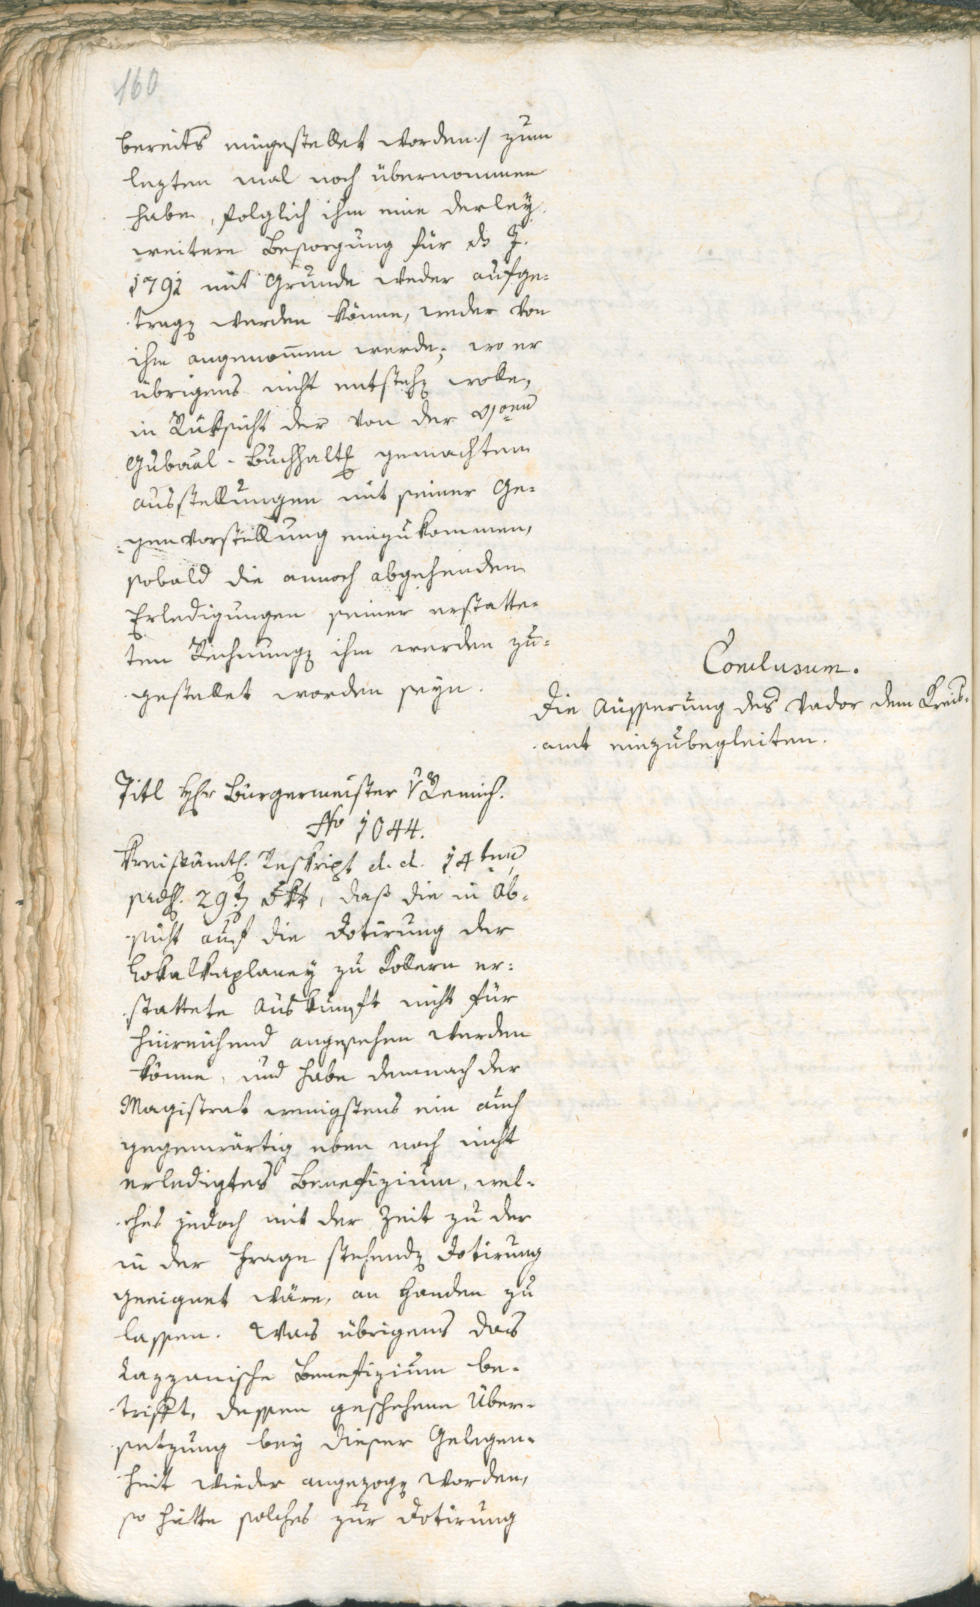 160
bereits eingestellet worden :/ zum
lezten mal noch übernommen
habe, folglich ihm eine derley
weitere Besorgung für ds J.
1792 mit Grunde weder aufge-
trag werden könne, weder von
ihm angenommen werde; wo er
übrigens nicht entsteh wolle,
in Rüksicht der von der
Gubaal-Buchhaltg gemachten
Ausstellungen mit seiner Ge-
genvorstellung einzukommen,
sobald die annoch abgehenden
Erledigungen seiner erstatte-
ten Rechnung ihm werden zu-
gestellet worden seyn.
Conclusum.
Die Äusserung des Vador dem Kreis-
amt einzubegleiten.
Titl Hr Bürgermeister v Remich.
No 1044.
Kreisämtl. Reskript d. d. 14ten
29t , daß die in Ab-
sicht auf die Dotirung der
Lokalkaplaney zu Kollern er-
stattete Auskunft nicht für
hinreichend angesehen werden
könne, und habe demnach der
Magistrat wenigstens ein auch
gegenwärtig eben noch nicht
erledigtes Benefizium, wel-
ches jedoch mit der Zeit zu der
in der Frage stehend Dotirung
geeignet wäre, an Handen zu
lassen. Was übrigens das
Lazzanische Benefizium be-
trifft, dessen geschehene Über-
setzung bey dieser Gelegen-
heit wieder angezog worden,
so hätte solches zur Dotirung